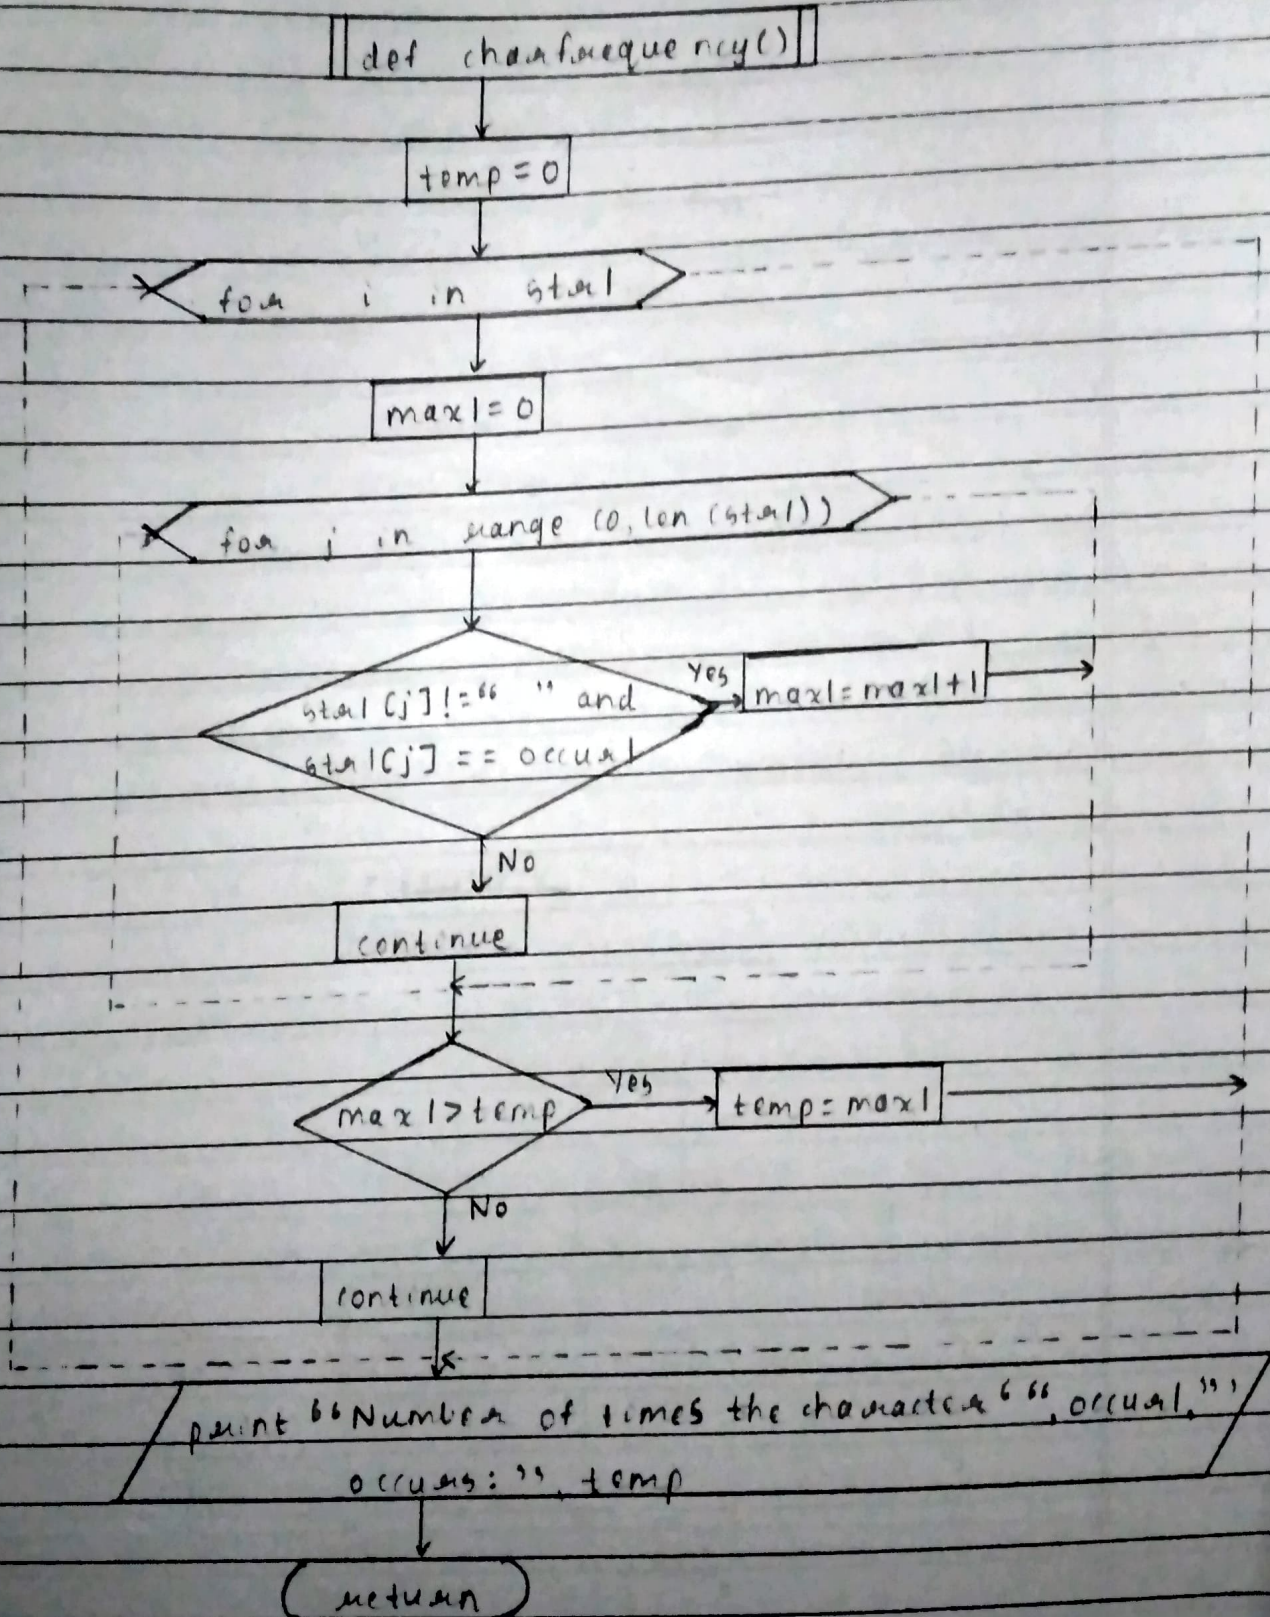 def charfrequency()
temp = 0
for i in str1
max1 = 0
for j in range (0, len (str1))
str1 [j] != “ ” and
str1 [j] == occur1
Yes
max1 = max1 + 1
No
continue
max1 > temp
Yes
temp = max1
No
continue
print “Number of times the character ‘ “, occur1, ” ’
occurs: ”, temp
return